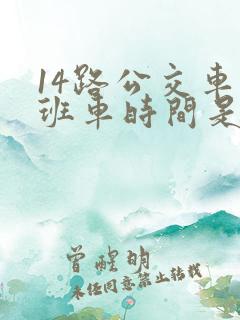 14路公交車
班車時間是
曾醒明
未经同意禁止转载